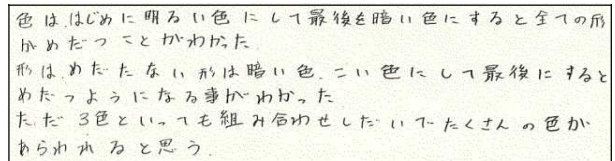 色は、はじめに明るい色にして最後を暗い色にすると全ての形
がめだつことがわかった。
形は、めだたない形は暗い色、こい色にして最後にすると
めだつようになる事がわかった
ただ3色といっても組み合わせしだいでたくさんの色が
あらわれると思う。